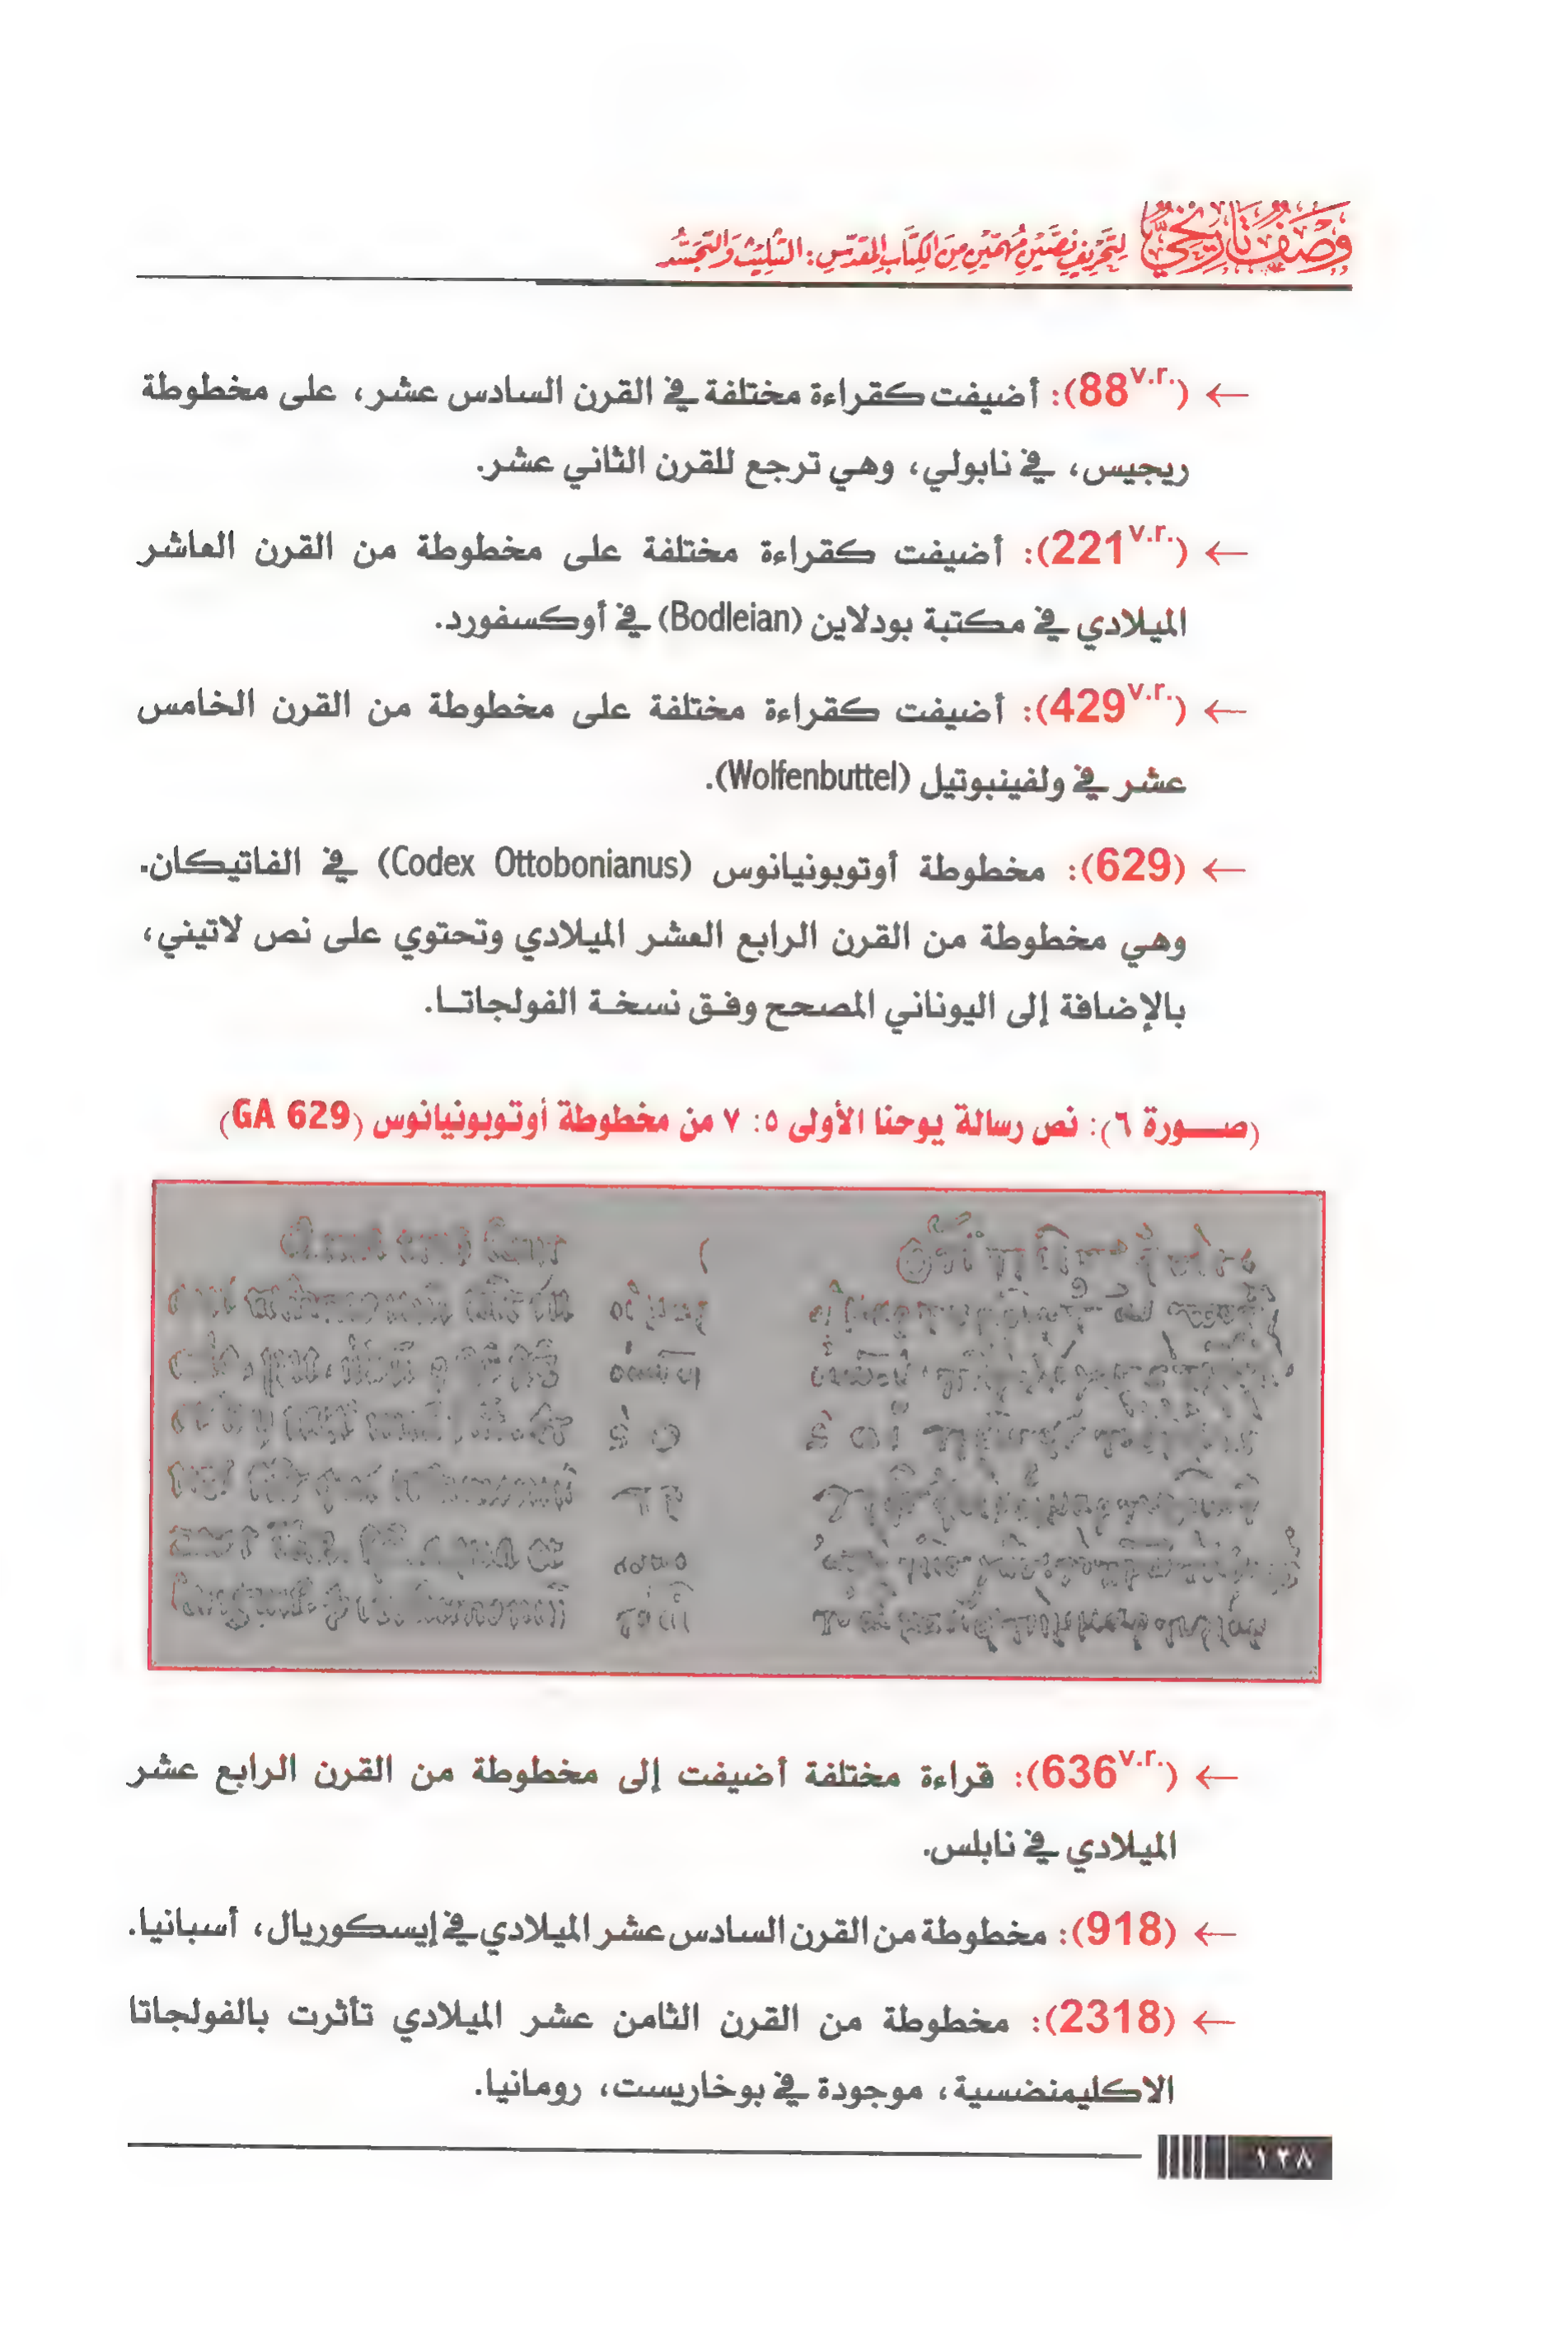 وَصْفٌ تَارِيخِيٌّ لِتَحْرِيفِ نَصَّيْنِ مُهِمَّيْنِ مِنَ الكِتَابِ المُقَدَّسِ: التَّثْلِيثُ وَالتَّجَسُّد
← (88v.r.): أضيفت كقراءة مختلفة في القرن السادس عشر، على مخطوطة
ريجيس، في نابولي، وهي ترجع للقرن الثاني عشر.
← (221v.r.): أضيفت كقراءة مختلفة على مخطوطة من القرن العاشر
الميلادي في مكتبة بودلاين (Bodleian) في أوكسفورد.
← (429v.r.): أضيفت كقراءة مختلفة على مخطوطة من القرن الخامس
عشر في ولفينبوتيل (Wolfenbuttel).
← (629): مخطوطة أوتوبونيانوس (Codex Ottobonianus) في الفاتيكان.
وهي مخطوطة من القرن الرابع العشر الميلادي وتحتوي على نص لاتيني،
بالإضافة إلى اليوناني المصحح وفق نسخة الفولجاتا.
(صورة ٦): نص رسالة يوحنا الأولى ٥: ٧ من مخطوطة أوتوبونيانوس (GA 629)
← (636v.r.): قراءة مختلفة أضيفت إلى مخطوطة من القرن الرابع عشر
الميلادي في نابلس.
← (918): مخطوطة من القرن السادس عشر الميلادي في إيسكوريال، أسبانيا.
← (2318): مخطوطة من القرن الثامن عشر الميلادي تأثرت بالفولجاتا
الاكليمنضسية، موجودة في بوخاريست، رومانيا.
١٢٨